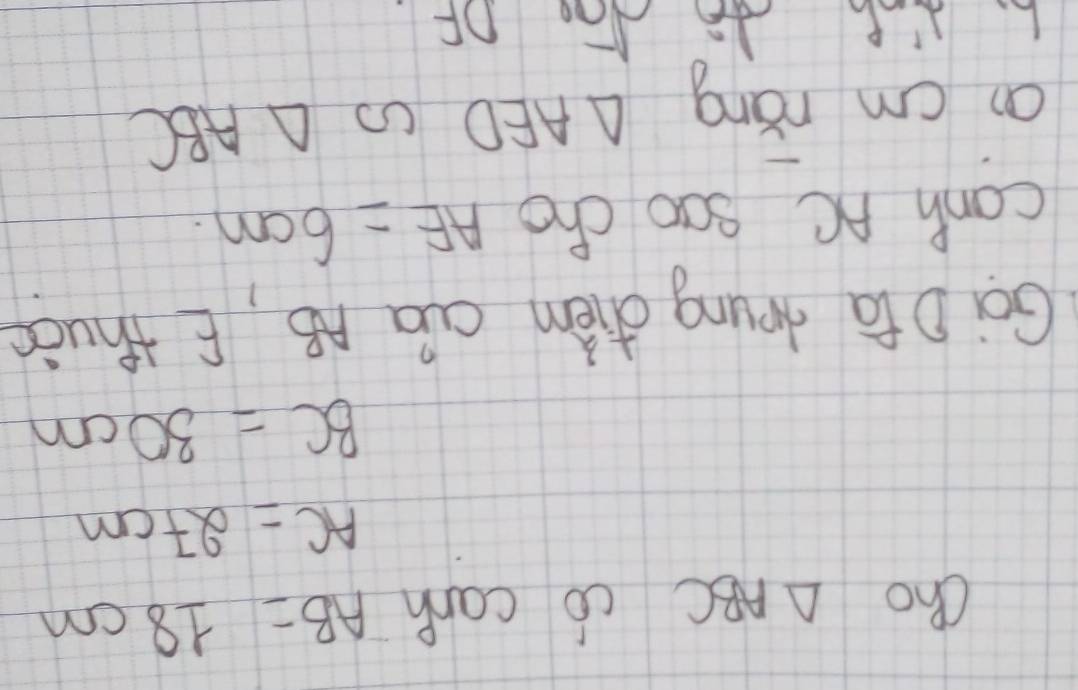 Cho Δ ABC có cạnh AB = 18 cm
AC = 27 cm
BC = 30 cm
Gọi D là trung điểm của AB, E thuộc
cạnh AC sao cho AE = 6 cm.
a) cm rằng Δ AED ∽ Δ ABC
DE